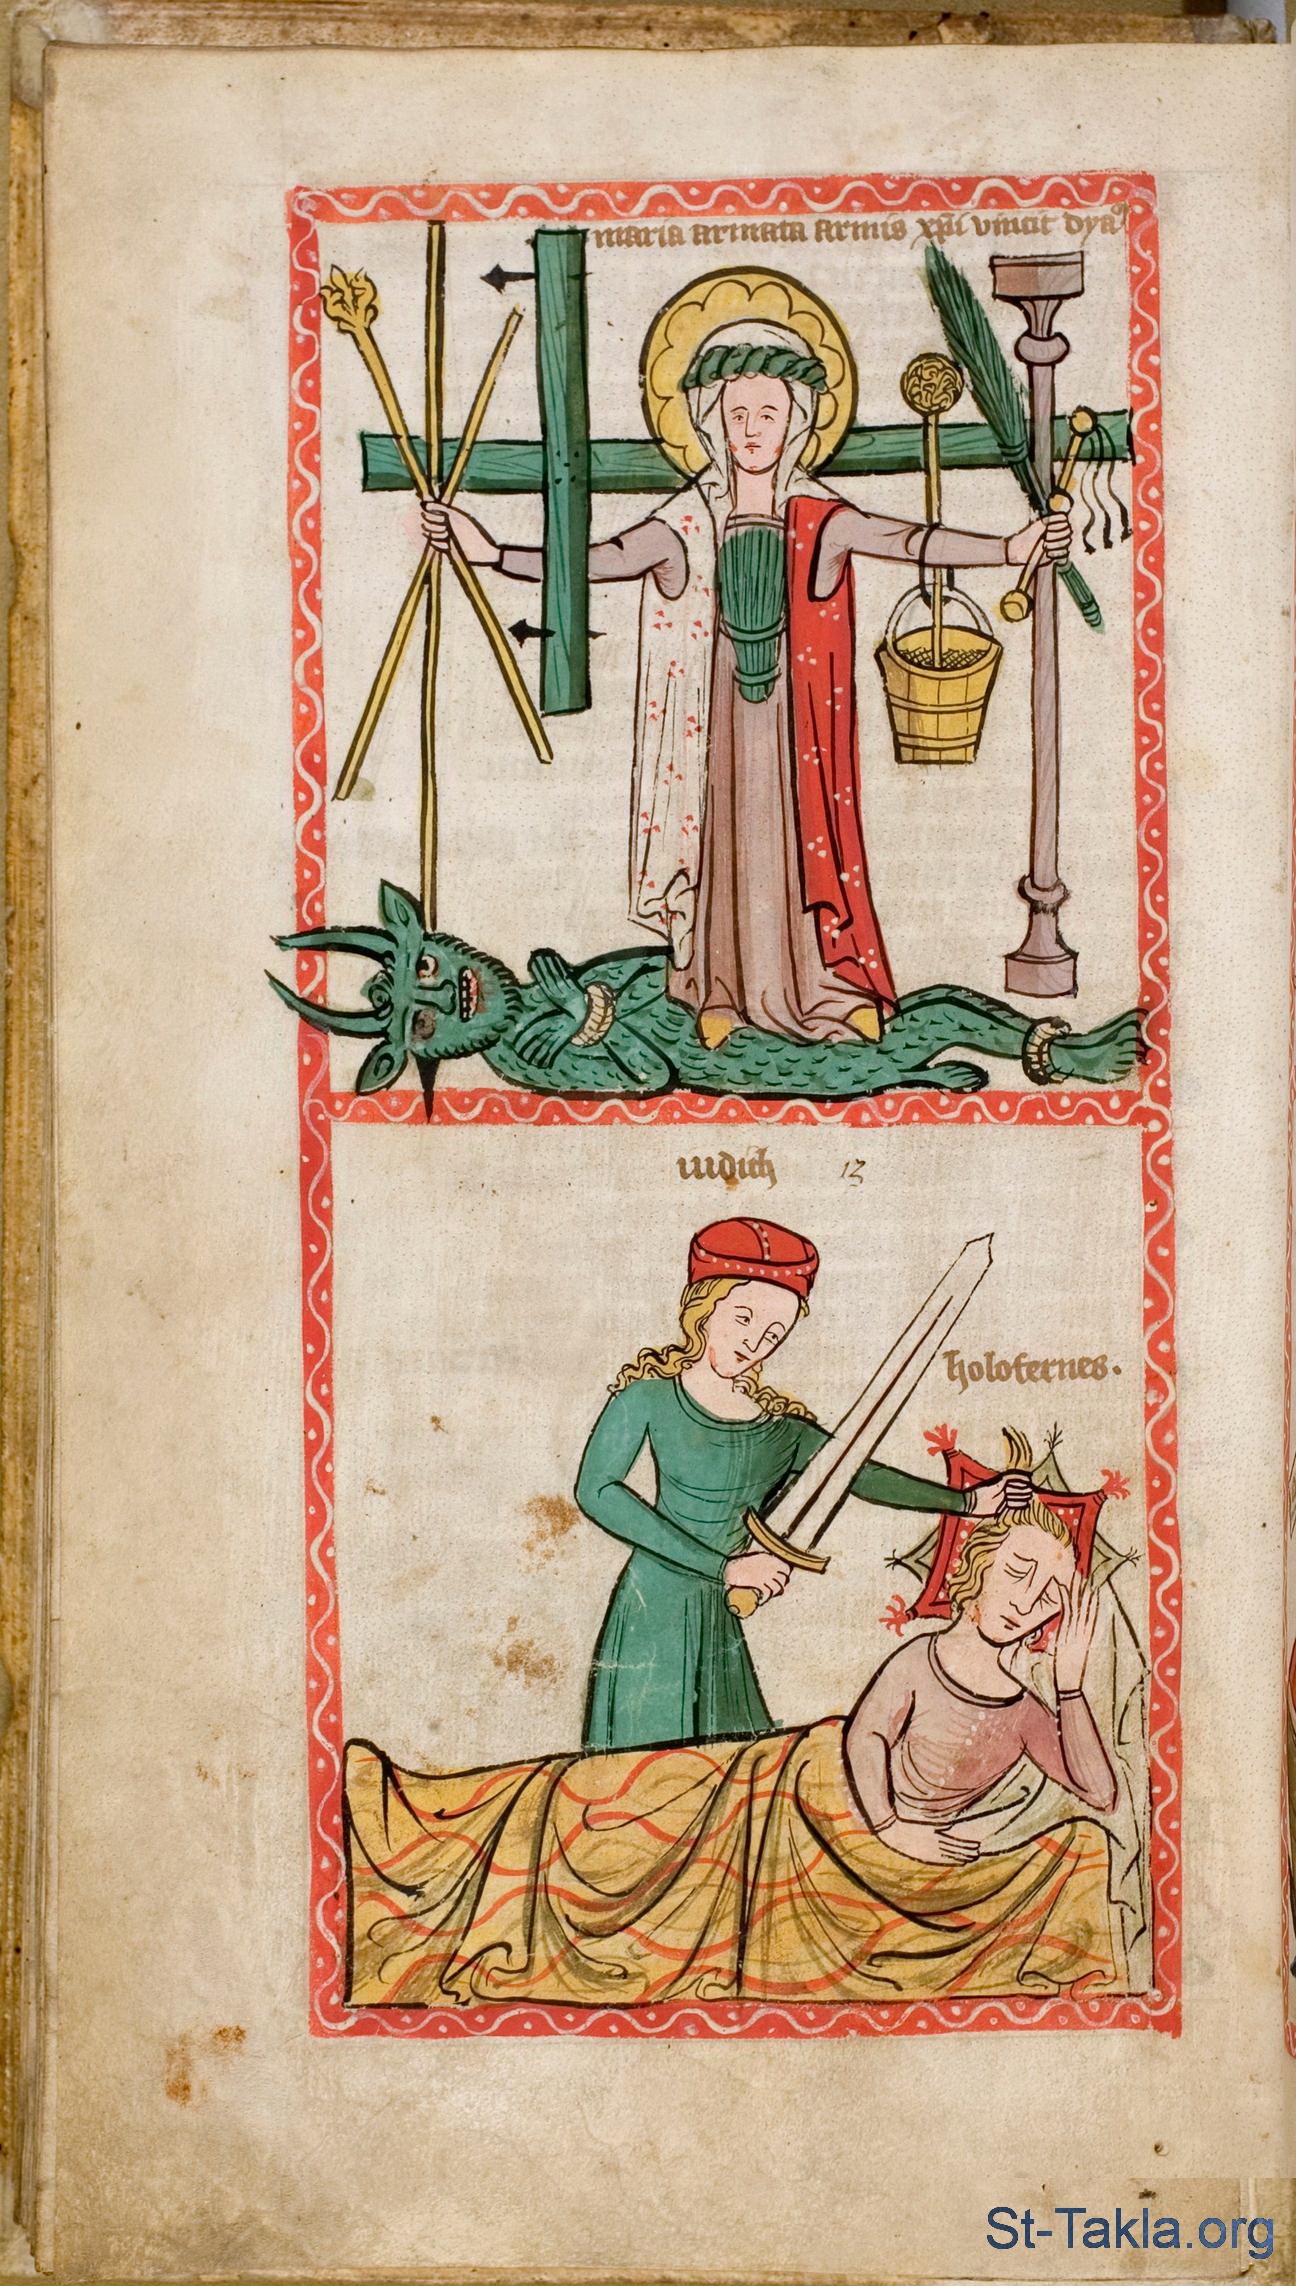 maria armata armis xp̄i vincit dyaᵒ
iudith 13
holofernes.
St-Takla.org